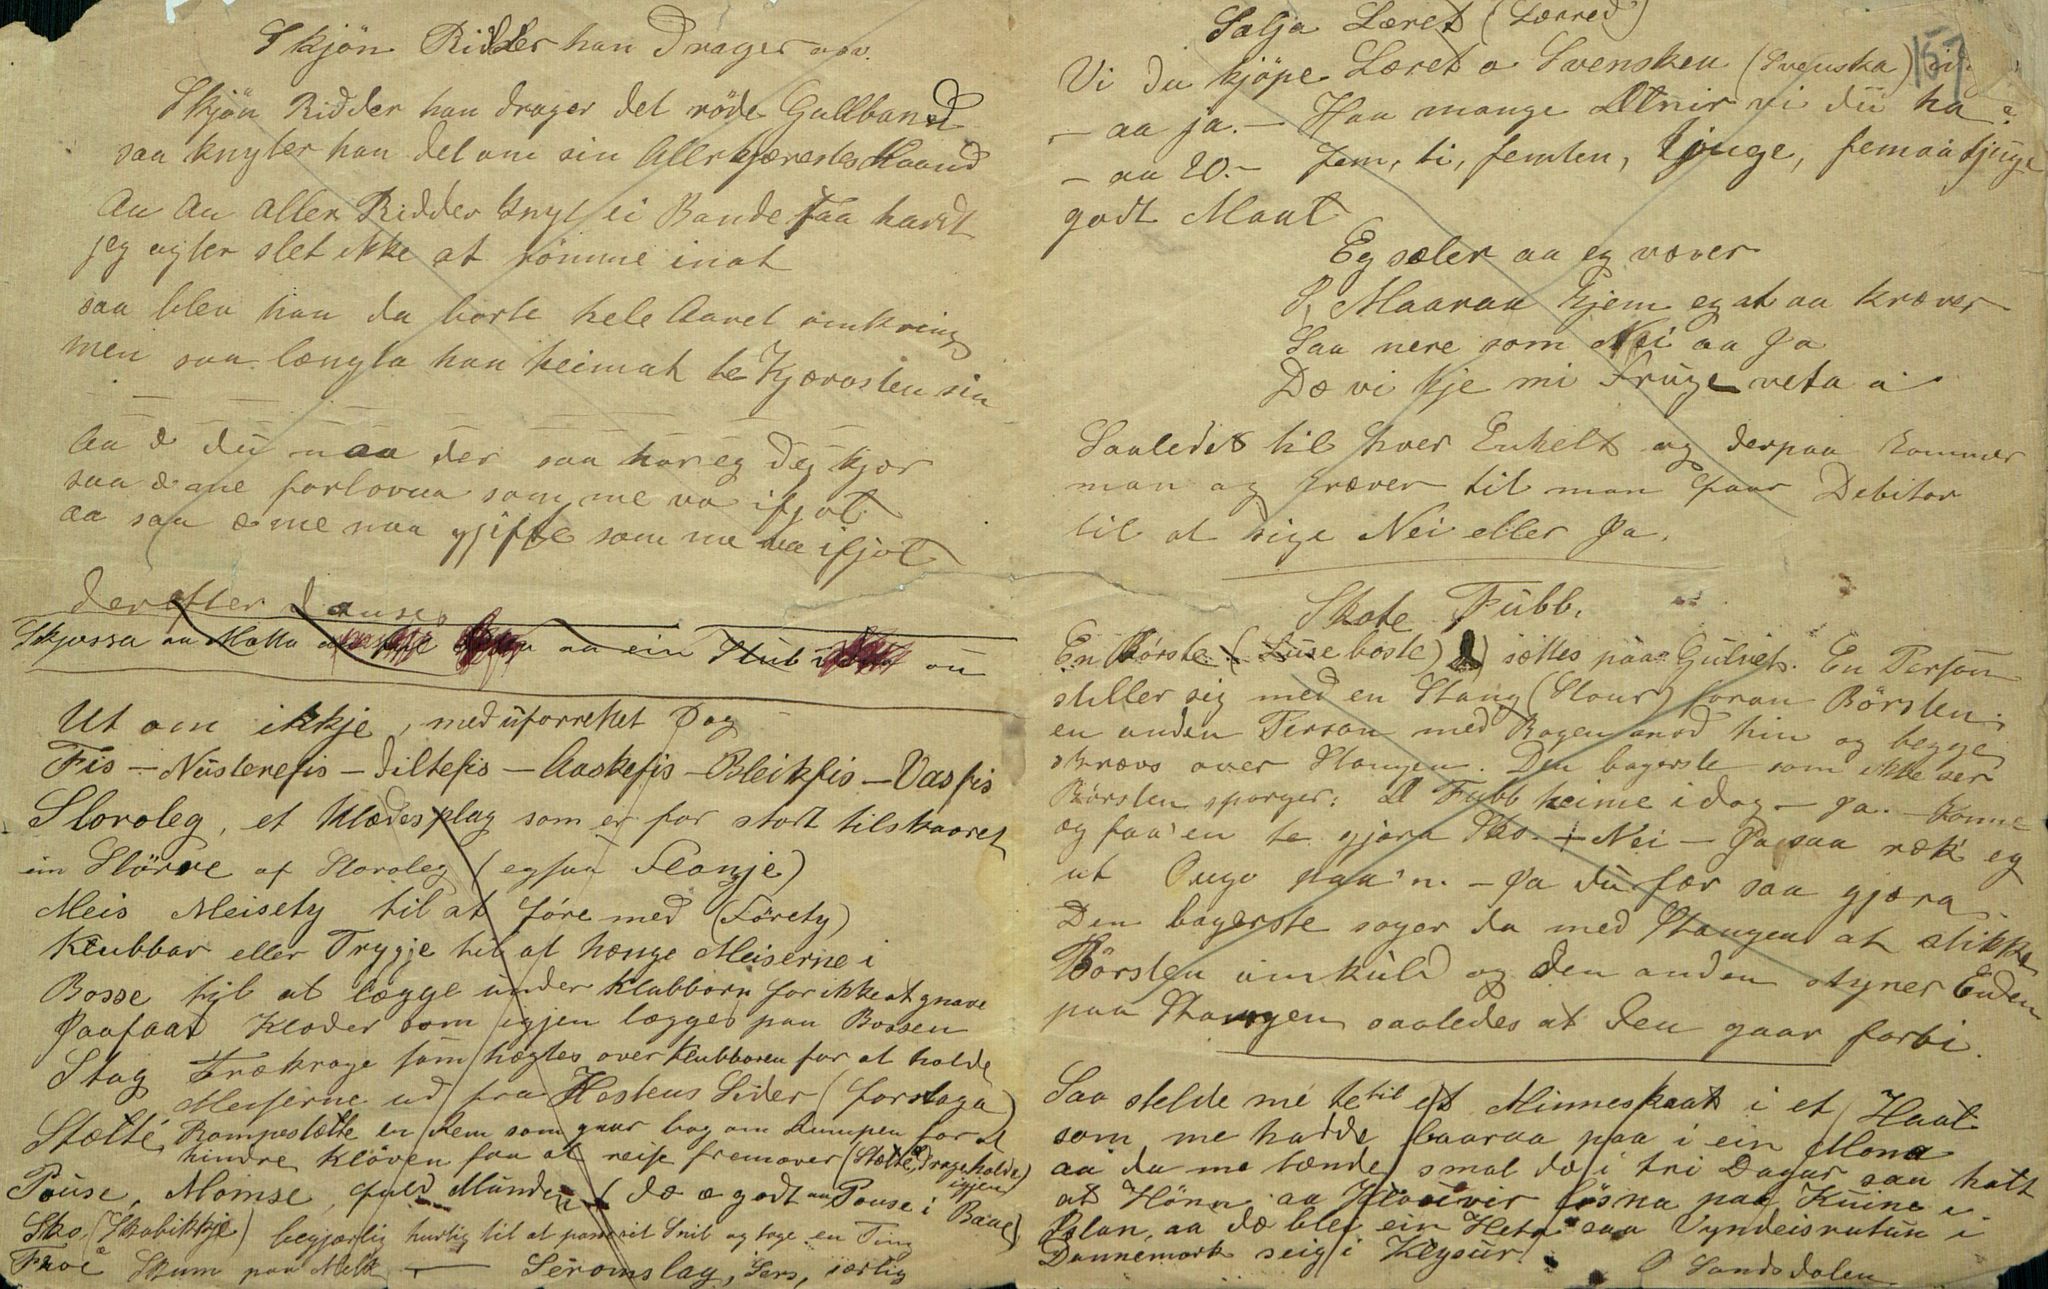 Skjön Ridder han drager
Skjön Ridder han drager det röde Gullband
saa knyter han det om sin Allerkjærestes Haand
Au Au Aller Ridder knyt ei Bande saa hardt
jeg agter slet ikke at römme inat
saa blev han da borte hele Aaret omkring
men saa længta han heimat te Kjærasten sin
Aa æ du naa der saa har eg dej kjær
saa æ me forlovaa som me va ifjol
aa saa æ me naa gjifte som me va ifjol
derefter danse
Skjossa aa Matta aa ein Stub
Ut om ikkje, med uforrettet Sag
Fis — Nusterefis — Diltefis — Aaskefis — Bleikfis — Vasfis
Storoleg, et Klædesplag som er for stort tilskaaret
ein Större af Storoleg (egsaa Flanje)
Meis Meisety til at före med (Förety)
Klubbar eller Trygje til at hænge Meiserne i
Bosse tyl at lægge under Klubborn for ikke at gnave
Paafaat Klæder som igjen lægges paa Bossen
Stag Trækrage som hægtes over Klubboren for at holde
Meiserne ud fra Hestens Sider (forstaga)
Stætte, Rompestætte en Rem som gaar bag om Rumpen for at
hindre Klöven fra at reise fremover (Stætte, drage holde)
igjen
Pouse, Momse, fuld Munden (dæ æ godt aa Pouse i Baae)
Sko (Skobikkje) begjærlig hurtig til at passe sit Snit og tage en Ting
Froe Skum paa Melk — Seromslag, Sers, særlig
157
Salja Læret (Lærred)
Vi du kjöpe Læret a Svensken (Svenska) i
— aa ja. — Haa mange Alnir vi du ha?
— aa 20. — fem, ti, femten, tjuge, femaatjuge
godt Maal
Eg sæler aa eg væver
I Maaraa kjem eg at aa kræver
Saa nere som Nei aa Ja
Dæ vi kje mi Fruge veta a
Saaledes til hver Enkelt og derpaa kommer
man og kræver til man faar Debitor
til at sige Nei eller Ja.
Skote Fubb.
En Börste (Luseboste) sættes paa Gulvet. En Person
stiller sig med en Stang (Staur) foran Börsten
en anden Person med Ryggen mod hin og begge
skrævs over Stangen. Den bagerste som ikke ser
Börsten spörger: Æ Fubb heime idag — Ja. — Konne
eg faa'en te gjera Sko. — Nei — Ja saa ræk eg
ut Ougo paa'n. — Ja du fær saa gjæra
Den bagerste soger da med Stangen at stikke
Börsten omkuld og den anden styrer Enden
paa Stangen saaledes at den gaar forbi.
Saa stelde me te til et Minneskaat i et Haal
som me hadde baaraa paa i ein Mona
aa da me tænde smal dæ i tri Dagar saa hatt
at Hönn aa Klauvir losna paa Kuine i
Aslan, aa dæ blei ein Heta saa Vyndeisrutun i
Dannemark seig i Klysur.
O Sandsdalen